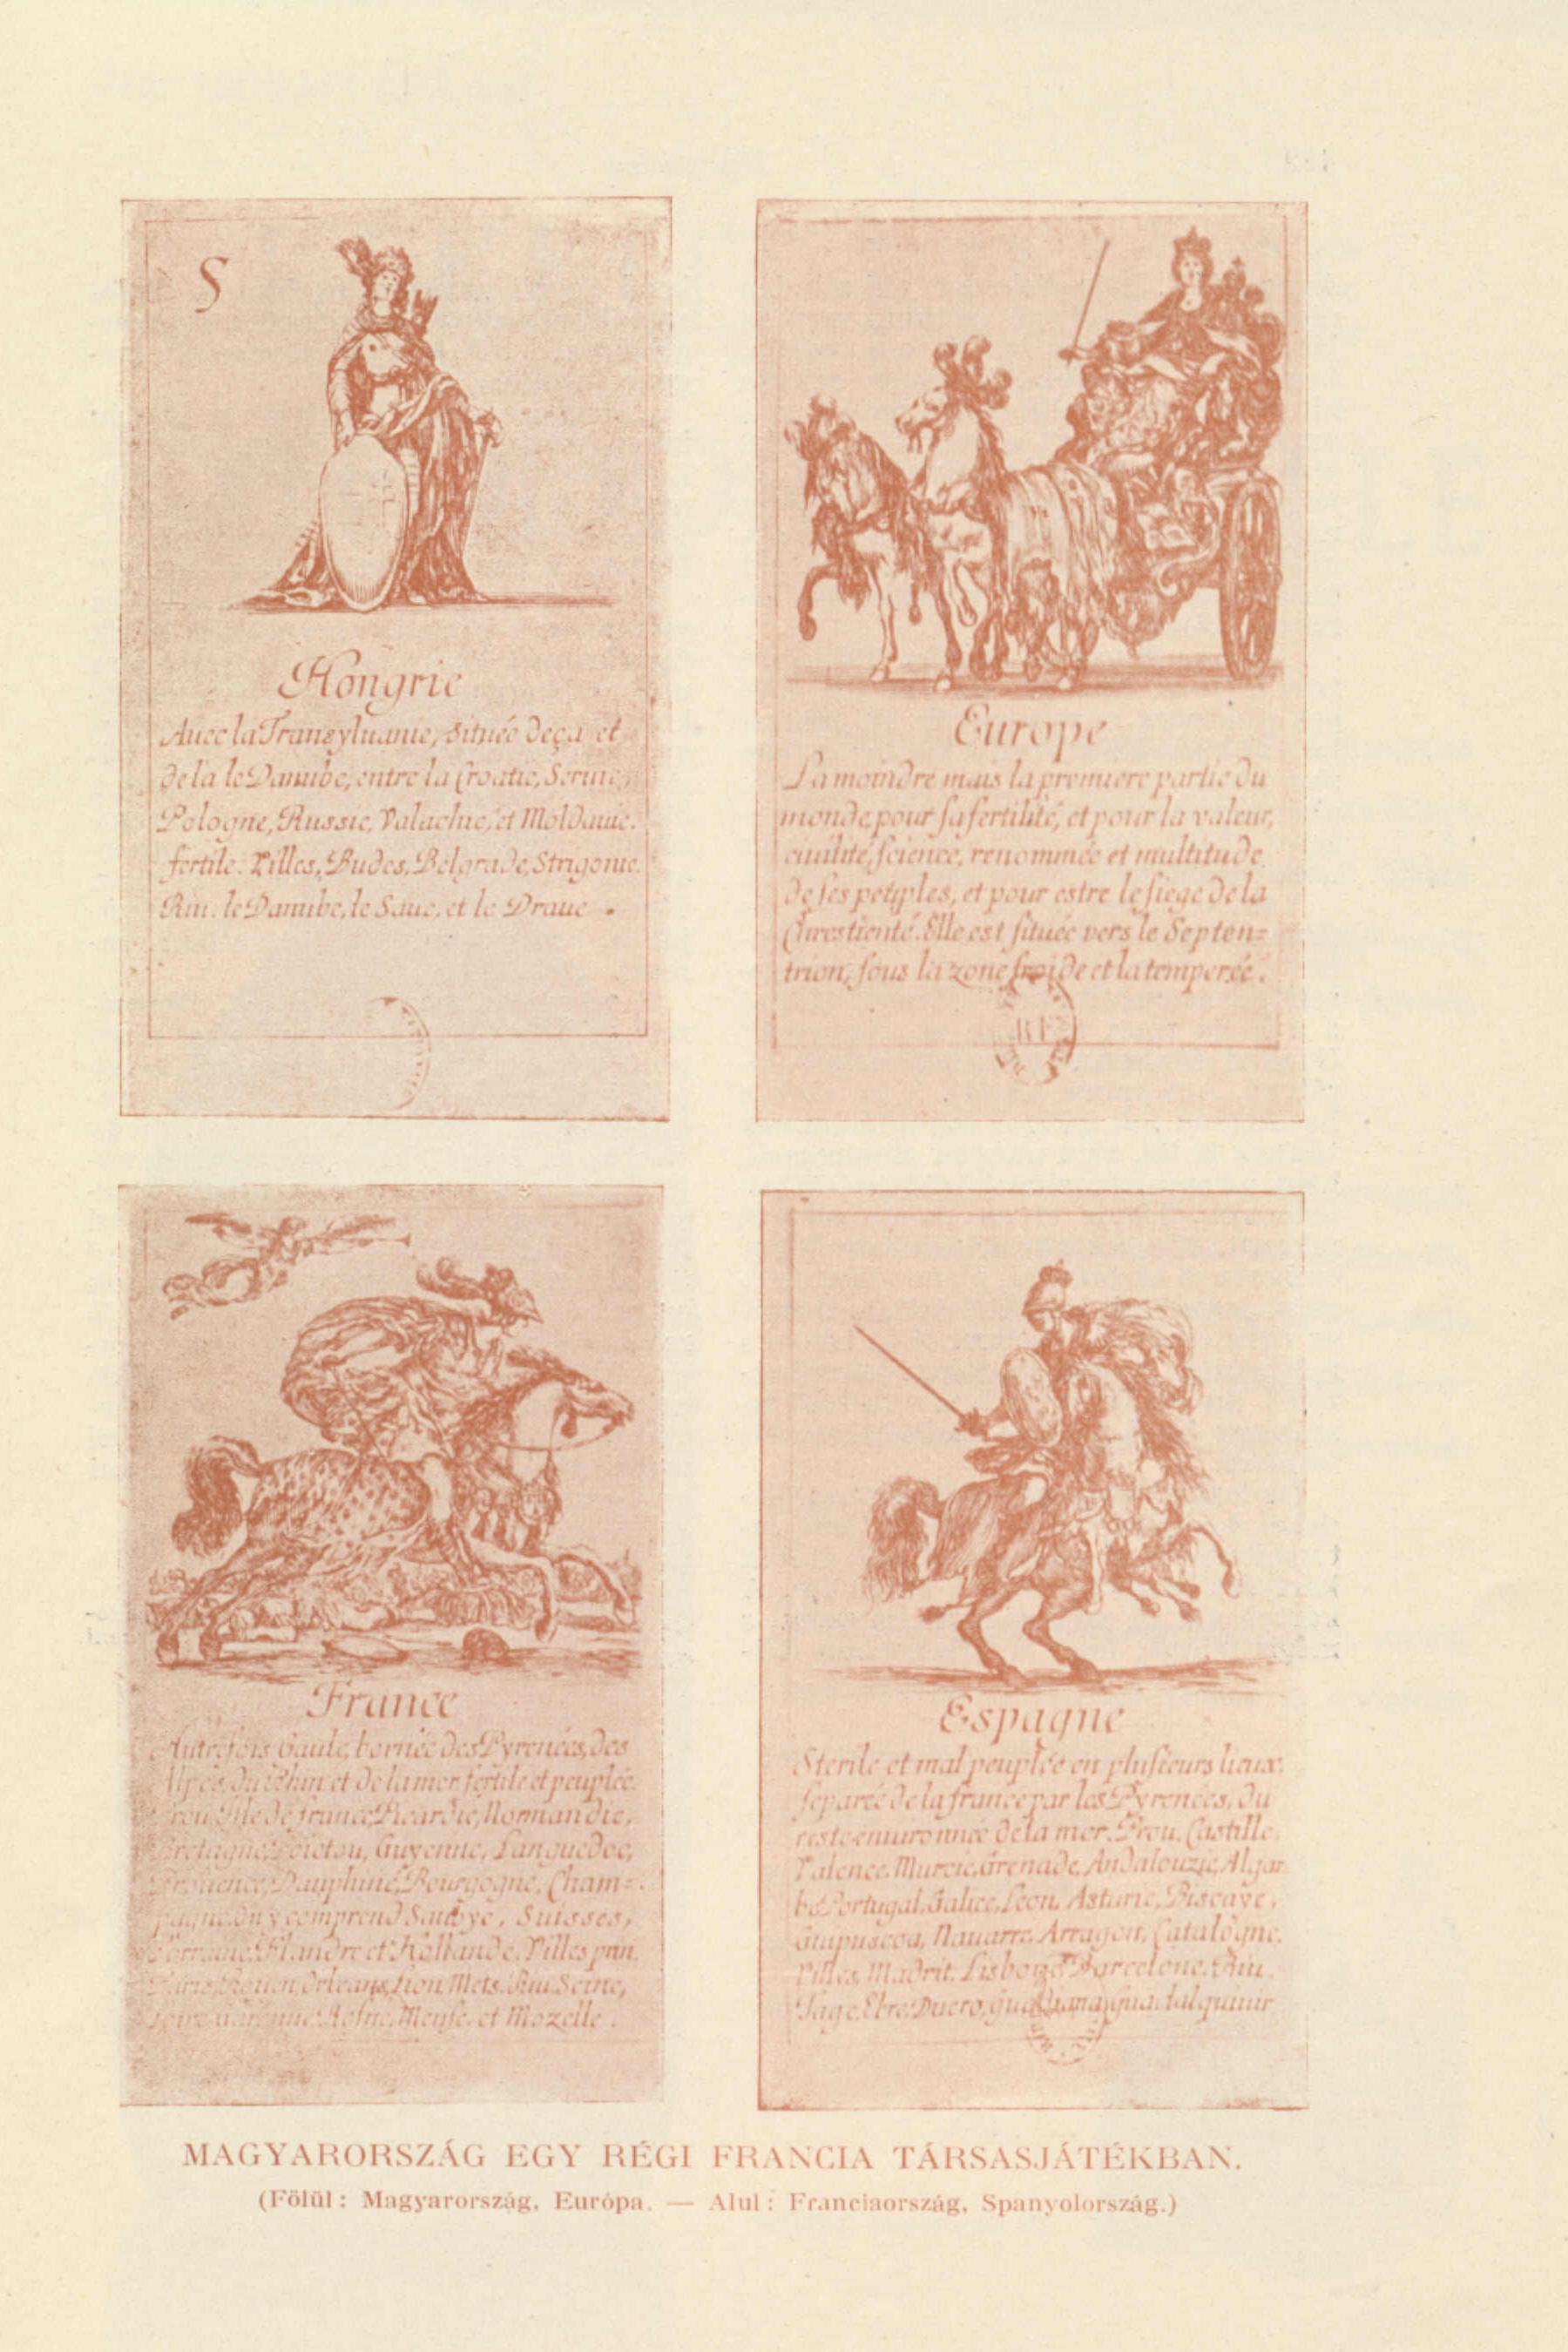 S
Hongrie
Avec la Transyluanie, située deça et
dela le Danube, entre la Croatie, Seruie,
Pologne, Russie, Valachie, et Moldauie.
fertile. Villes, Budes, Belgrade, Strigonie.
Riu. le Danube, le Saue, et le Draue.
Europe
La moindre mais la premiere partie du
monde, pour sa fertilité, et pour la valeur,
ciuilité, science, renommée et multitude
de ses peuples, et pour estre le siege de la
Chrestienté. Elle est située vers le Septen=
trion, sous la zone froide et la temperée.
France
Autrefois Gaule, bornée des Pyrenées, des
Alpes, du Rhin et de la mer. fertile et peuplée.
Prou. Isle de france, Picardie, Normandie,
Bretagne, Poictou, Guyenne, Languedoc,
Prouence, Dauphiné, Bourgogne, Cham=
pagne. On y comprend Sauoye, Suisses,
Lorraine, Flandre et Hollande. Villes prin.
Paris, Rouen, Orleans, Lion, Mets. Riu. Seine,
Loire, Rosne, Meuse, et Mozelle.
Espagne
Sterile et mal peuplée en plusieurs lieux.
separée de la france par les Pyrenées, du
reste enuironnée de la mer. Prou. Castille,
Valence, Murcie, Grenade, Andalouzie, Algar
be, Portugal, Galice, Leon, Asturie, Biscaye,
Guipuscoa, Nauarre, Arragon, Catalogne.
Villes, Madrit, Lisbone, Barcelone. Riu.
Tage, Ebre, Duero, Guadiana, Guadalquiuir
MAGYARORSZÁG EGY RÉGI FRANCIA TÁRSASJÁTÉKBAN.
(Fölül: Magyarország, Európa. — Alul: Franciaország, Spanyolország.)